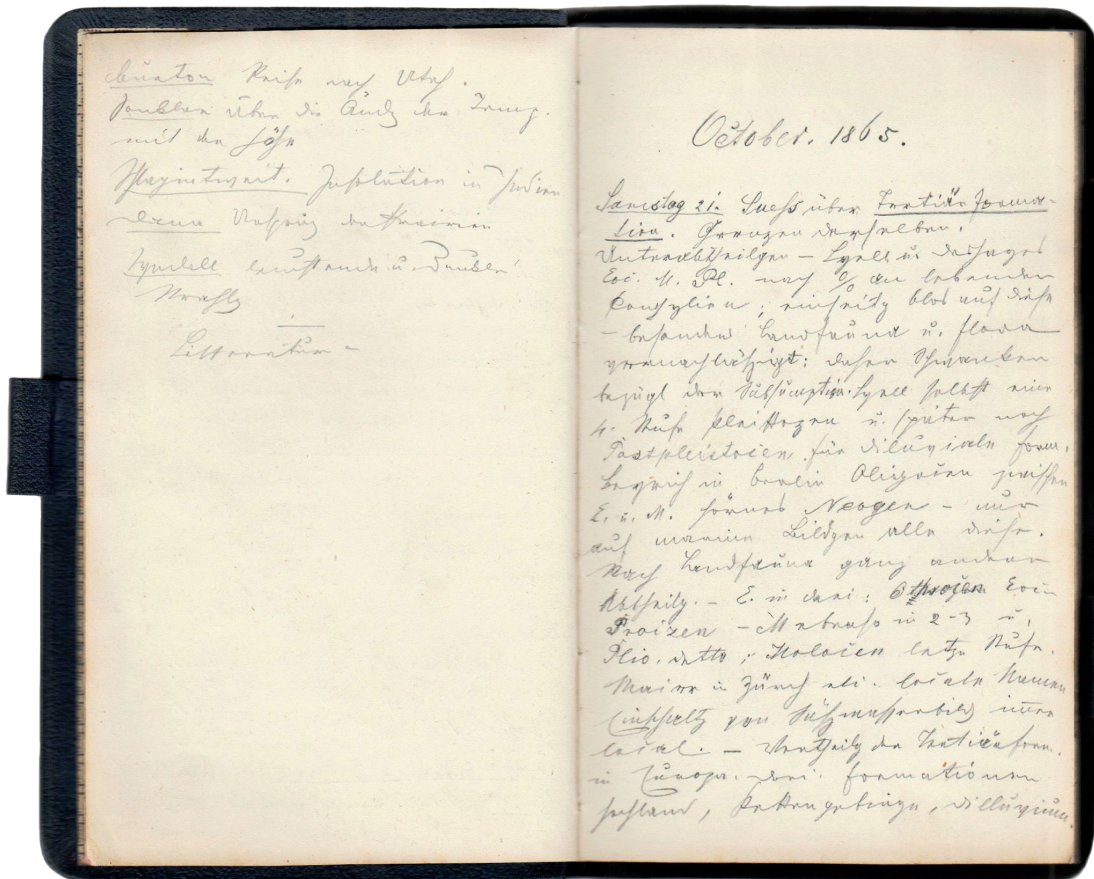 Burton Reise nach Utah.
über die der Temp.
mit der Höhe
Schlagintweit. Insolation in Indien
Ursprung der
Tyndall leuchtende u. dunkle
Strahlg
Litteratur –
October. 1865.
Samstag 21. Suess über Tertiär forma-
tion. Grenzen derselben.
Unterabtheilgen – Lyell u. Deshayes
Eoc. M. Pl. nach % an lebenden
Conchylien; einseitig blos auf diese
– besonders Landfauna u. flora
vernachläßigt; daher Schwanken
bezügl der Subsumption. Lyell selbst eine
4. Stufe Pleistozen u. später noch
Postpleistocen für diluviale form.
Beyrich in Berlin Oligocen zwischen
E. u. M. Hörnes Neogen – nur
auf marine Bildgen alle diese.
Nach Landfauna ganz andere
Abtheilg. – E. in drei: Eoc
– M ebenso in 2-3 u.
Plio. detto; Holocen letzte Stufe.
Maier in Zürich etc. locale Namen
Einschaltg von Süßwasserbild immer
local. – Vertheilg der Tertiärform.
in Europa. drei formationen
Hochland, Kettengebirge, Dilluvium.